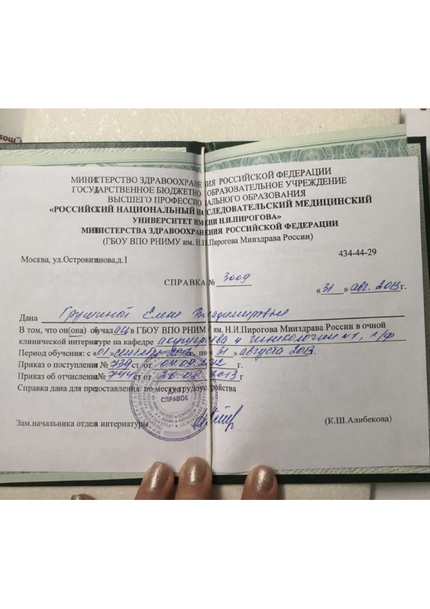 МИНИСТЕРСТВО ЗДРАВООХРАНЕНИЯ РОССИЙСКОЙ ФЕДЕРАЦИИ
ГОСУДАРСТВЕННОЕ БЮДЖЕТНОЕ ОБРАЗОВАТЕЛЬНОЕ УЧРЕЖДЕНИЕ
ВЫСШЕГО ПРОФЕССИОНАЛЬНОГО ОБРАЗОВАНИЯ
«РОССИЙСКИЙ НАЦИОНАЛЬНЫЙ ИССЛЕДОВАТЕЛЬСКИЙ МЕДИЦИНСКИЙ
УНИВЕРСИТЕТ ИМЕНИ Н.И.ПИРОГОВА»
МИНИСТЕРСТВА ЗДРАВООХРАНЕНИЯ РОССИЙСКОЙ ФЕДЕРАЦИИ
(ГБОУ ВПО РНИМУ им. Н.И.Пирогова Минздрава России)
Москва, ул.Островитянова,д.1 434-44-29
СПРАВКА № 3009 «31» авг. 2013г.
Дана Грушиной Елене Владимировне
В том, что он(она) обучалась в ГБОУ ВПО РНИМУ им. Н.И.Пирогова Минздрава России в очной
клинической интернатуре на кафедре акушерства и гинекологии
Период обучения: с «01» сентября 2012 по «31» августа 2013.
Приказ о поступлении № 739 ст от 04.09.2012
Приказ об отчислении № 744 ст от 26.08.2013 г
Справка дана для предоставления по месту трудоустройства
ДЛЯ
СПРАВОК
Зам.начальника отдела интернатуры (К.Ш.Алибекова)